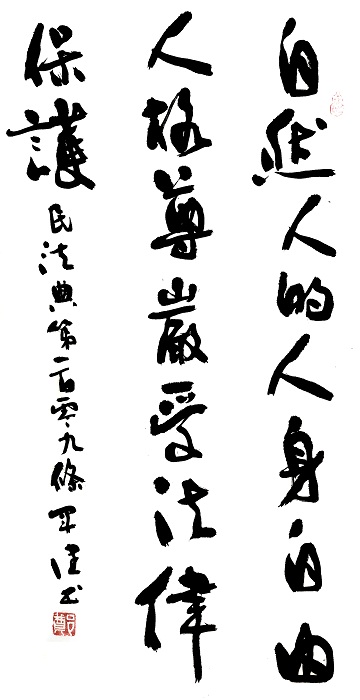 自然人的人身自由
人格尊嚴受法偉
保護
民法典第一百零九條